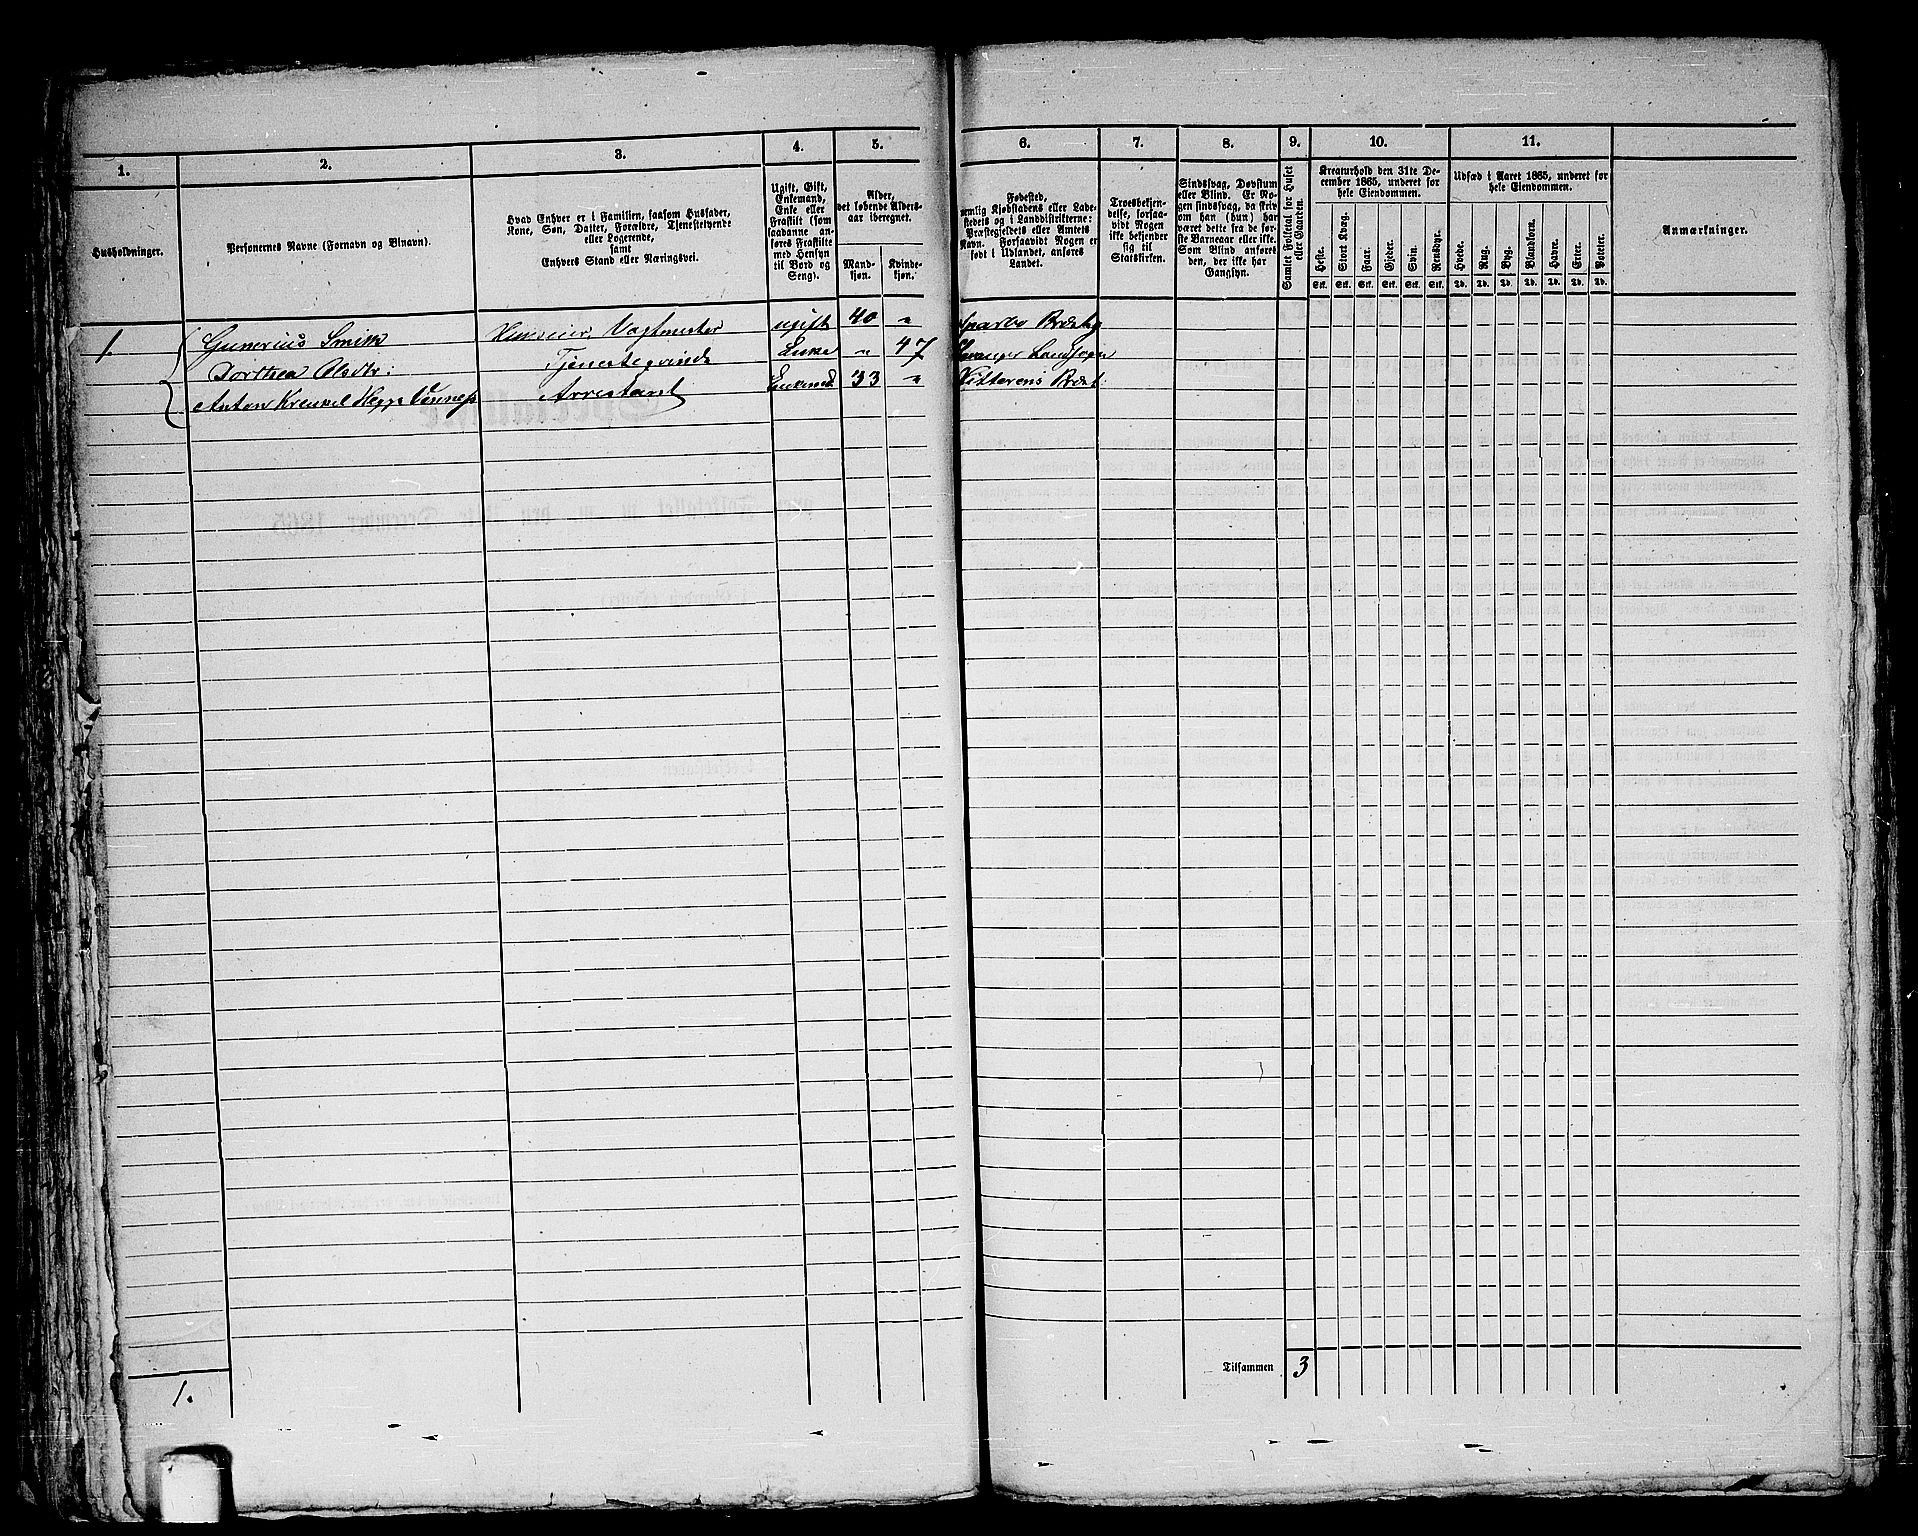 1.
2.
3.
4.
5.
6.
7.
8.
9.
10.
11.
Husholdninger.
Personernes Navne (Fornavn og Binavn).
Hvad Enhver er i Familien, saasom Husfader,
Kone, Søn, Datter, Forældre, Tjenestetyende
eller Logerende,
samt
Enhvers Stand eller Næringsvei.
Ugift, Gift,
Enkemand,
Enke eller
Fraskilt (som
saadanne an-
føres Fraskilte
med Hensyn
til Bord og
Seng).
Alder,
det løbende Alders-
aar iberegnet.
Mand-
kjøn.
Kvinde-
kjøn.
Fødested,
nemlig Kjøbstadens eller Lade-
stedets og i Landdistrikterne:
Præstegjeldets eller Amtets
Navn. Forsaavidt Nogen er
født i Udlandet, anføres
Landet.
Troesbekjen-
delse, forsaa-
vidt Nogen
ikke bekjender
sig til
Statskirken.
Sindssvag, Døvstum
eller Blind. Er No-
gen sindssvag, da skriv
om han (hun) har
været dette fra de før-
ste Barneaar eller ikke.
Som Blind anføres
den, der ikke har
Gangsyn.
Samlet Folketal for Huset
eller Gaarden.
Kreaturhold den 31te De-
cember 1865, underet for
hele Eiendommen.
Heste.
Stort Kvæg.
Faar.
Gjeder.
Svin.
Rensdyr.
Stk. Stk. Stk. Stk. Stk. Stk.
Udsæd i Aaret 1865, underet for
hele Eiendommen.
Hvede.
Rug.
Byg.
Blandkorn.
Havre.
Erter.
Poteter.
Td. Td. Td. Td. Td. Td. Td.
Anmærkninger.
1. Gunerius Smith Huuseier, Vagtmester ugift 40 " Sparbo Præsteg
Dorthea Olsdtr: Tjenestegvinde Enke " 47 Landsogn
Anton Krenkel Hegge Arrestant Enkemd. 33 " Præst:
Tilsammen 3
1.